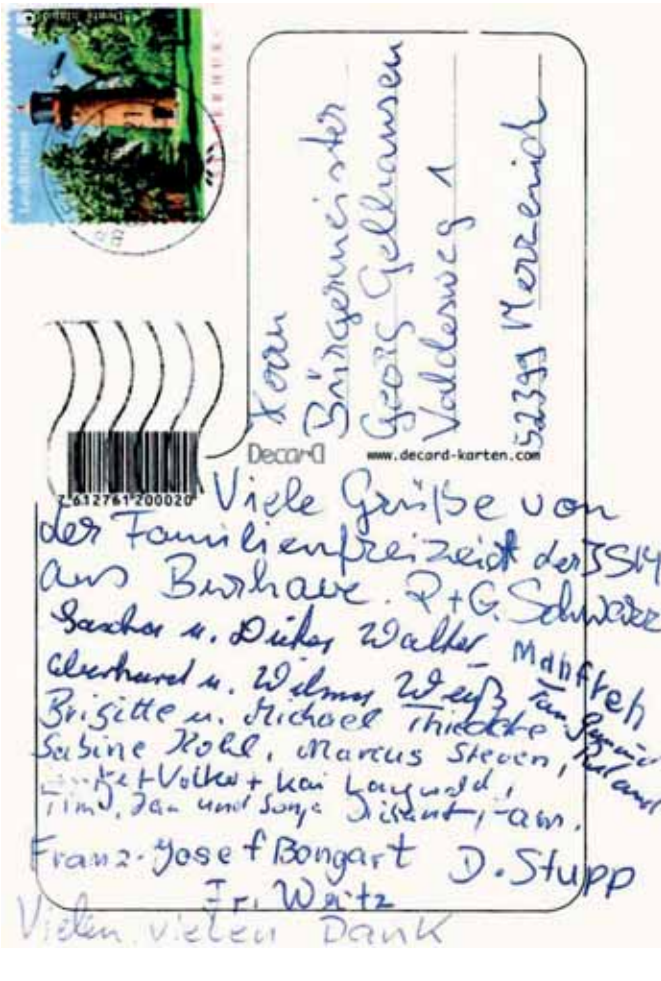 Leuchttürme
Herrn
Bürgermeister
Georg Gelhausen
Valdersweg 1
52399 Merzenich
Decard
www.decard-karten.com
7 612761 200020
Viele Grüße von
der Familienfreizeit der
aus Burhave. P+G. Schwarz
u. Walter Manfred
Eberhard u. Wilma Weiß Fam.
Brigitte u. Michael
Sabine Kohl, Marcus Steven,
+ Volker + Kai
Timo, Jan und Sonja
Franz-Josef Bongart D. Stupp
Fr. Weitz
Vielen, vielen Dank